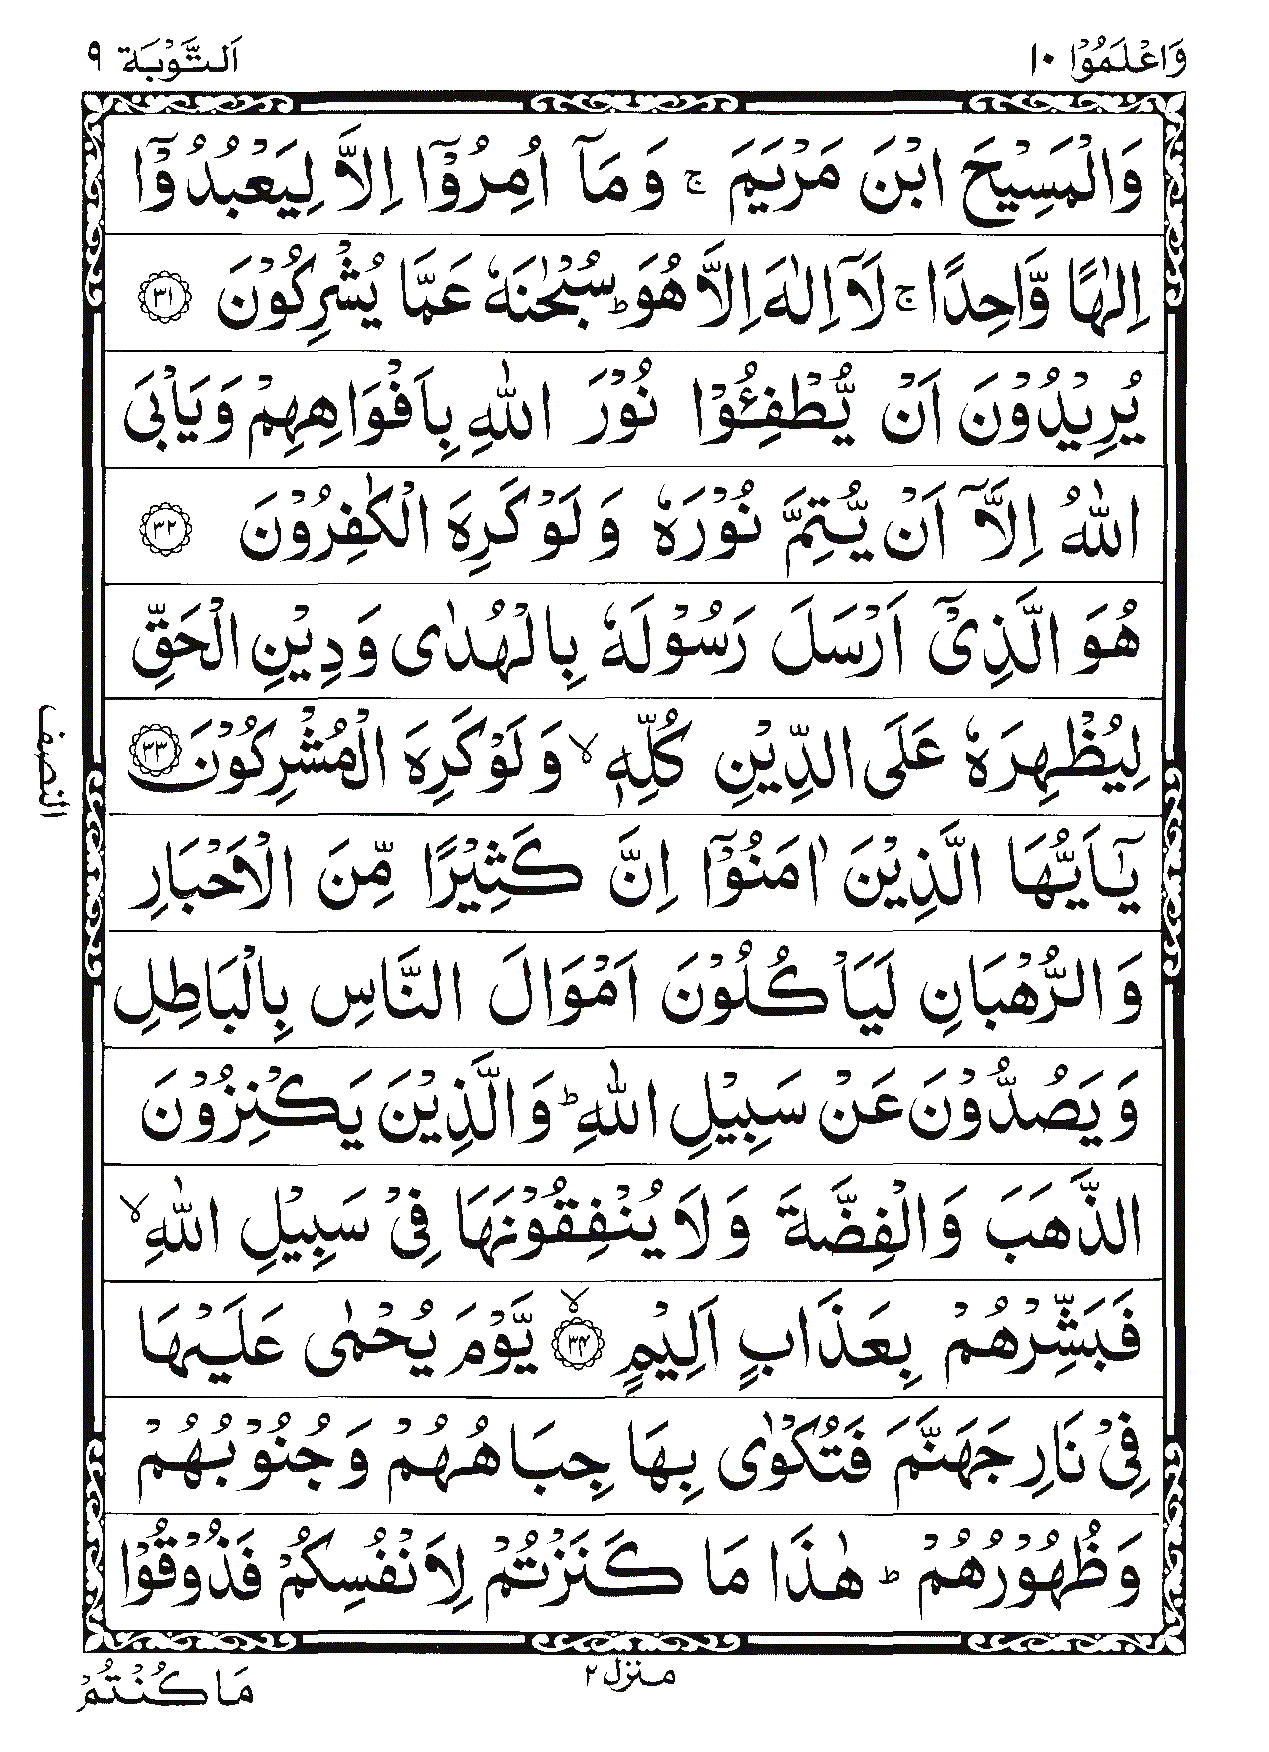 وَاعْلَمُوْٓا ١٠
اَلتَّوْبَة ٩
وَالْمَسِيْحَ ابْنَ مَرْيَمَ ۚ وَمَآ اُمِرُوْٓا اِلَّا لِيَعْبُدُوْٓا
اِلٰهًا وَّاحِدًا ۚ لَآ اِلٰهَ اِلَّا هُوَ ؕ سُبْحٰنَهٗ عَمَّا يُشْرِكُوْنَ ۝٣١
يُرِيْدُوْنَ اَنْ يُّطْفِـُٔوْا نُوْرَ اللّٰهِ بِاَفْوَاهِهِمْ وَيَاْبَى
اللّٰهُ اِلَّآ اَنْ يُّتِمَّ نُوْرَهٗ وَلَوْ كَرِهَ الْكٰفِرُوْنَ ۝٣٢
هُوَ الَّذِيْٓ اَرْسَلَ رَسُوْلَهٗ بِالْهُدٰى وَدِيْنِ الْحَقِّ
لِيُظْهِرَهٗ عَلَى الدِّيْنِ كُلِّهٖ ۙ وَلَوْ كَرِهَ الْمُشْرِكُوْنَ ۝٣٣
النصف
يٰٓاَيُّهَا الَّذِيْنَ اٰمَنُوْٓا اِنَّ كَثِيْرًا مِّنَ الْاَحْبَارِ
وَالرُّهْبَانِ لَيَاْكُلُوْنَ اَمْوَالَ النَّاسِ بِالْبَاطِلِ
وَيَصُدُّوْنَ عَنْ سَبِيْلِ اللّٰهِ ؕ وَالَّذِيْنَ يَكْنِزُوْنَ
الذَّهَبَ وَالْفِضَّةَ وَلَا يُنْفِقُوْنَهَا فِيْ سَبِيْلِ اللّٰهِ ۙ
فَبَشِّرْهُمْ بِعَذَابٍ اَلِيْمٍ ۝٣٤ ۙ يَّوْمَ يُحْمٰى عَلَيْهَا
فِيْ نَارِ جَهَنَّمَ فَتُكْوٰى بِهَا جِبَاهُهُمْ وَجُنُوْبُهُمْ
وَظُهُوْرُهُمْ ؕ هٰذَا مَا كَنَزْتُمْ لِاَنْفُسِكُمْ فَذُوْقُوْا
منزل ٢
مَا كُنْتُمْ